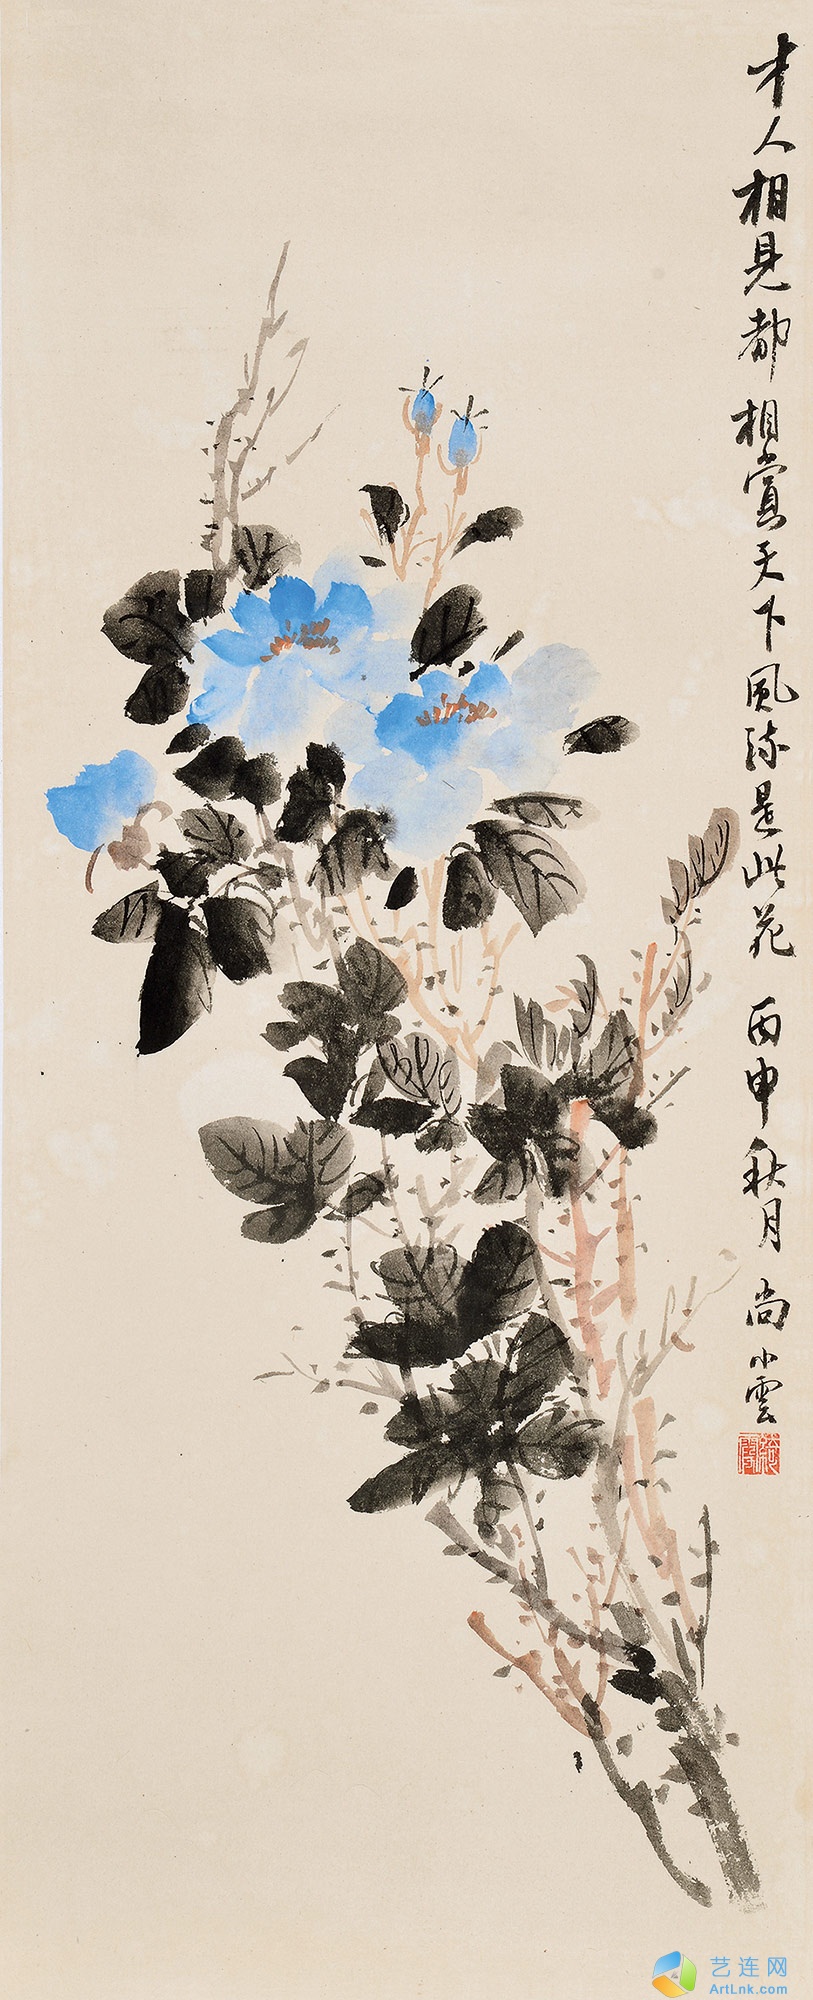 才人相見都相賞天下風流是此花 丙申秋月 尚小雲
艺连网
ArtLnk.com